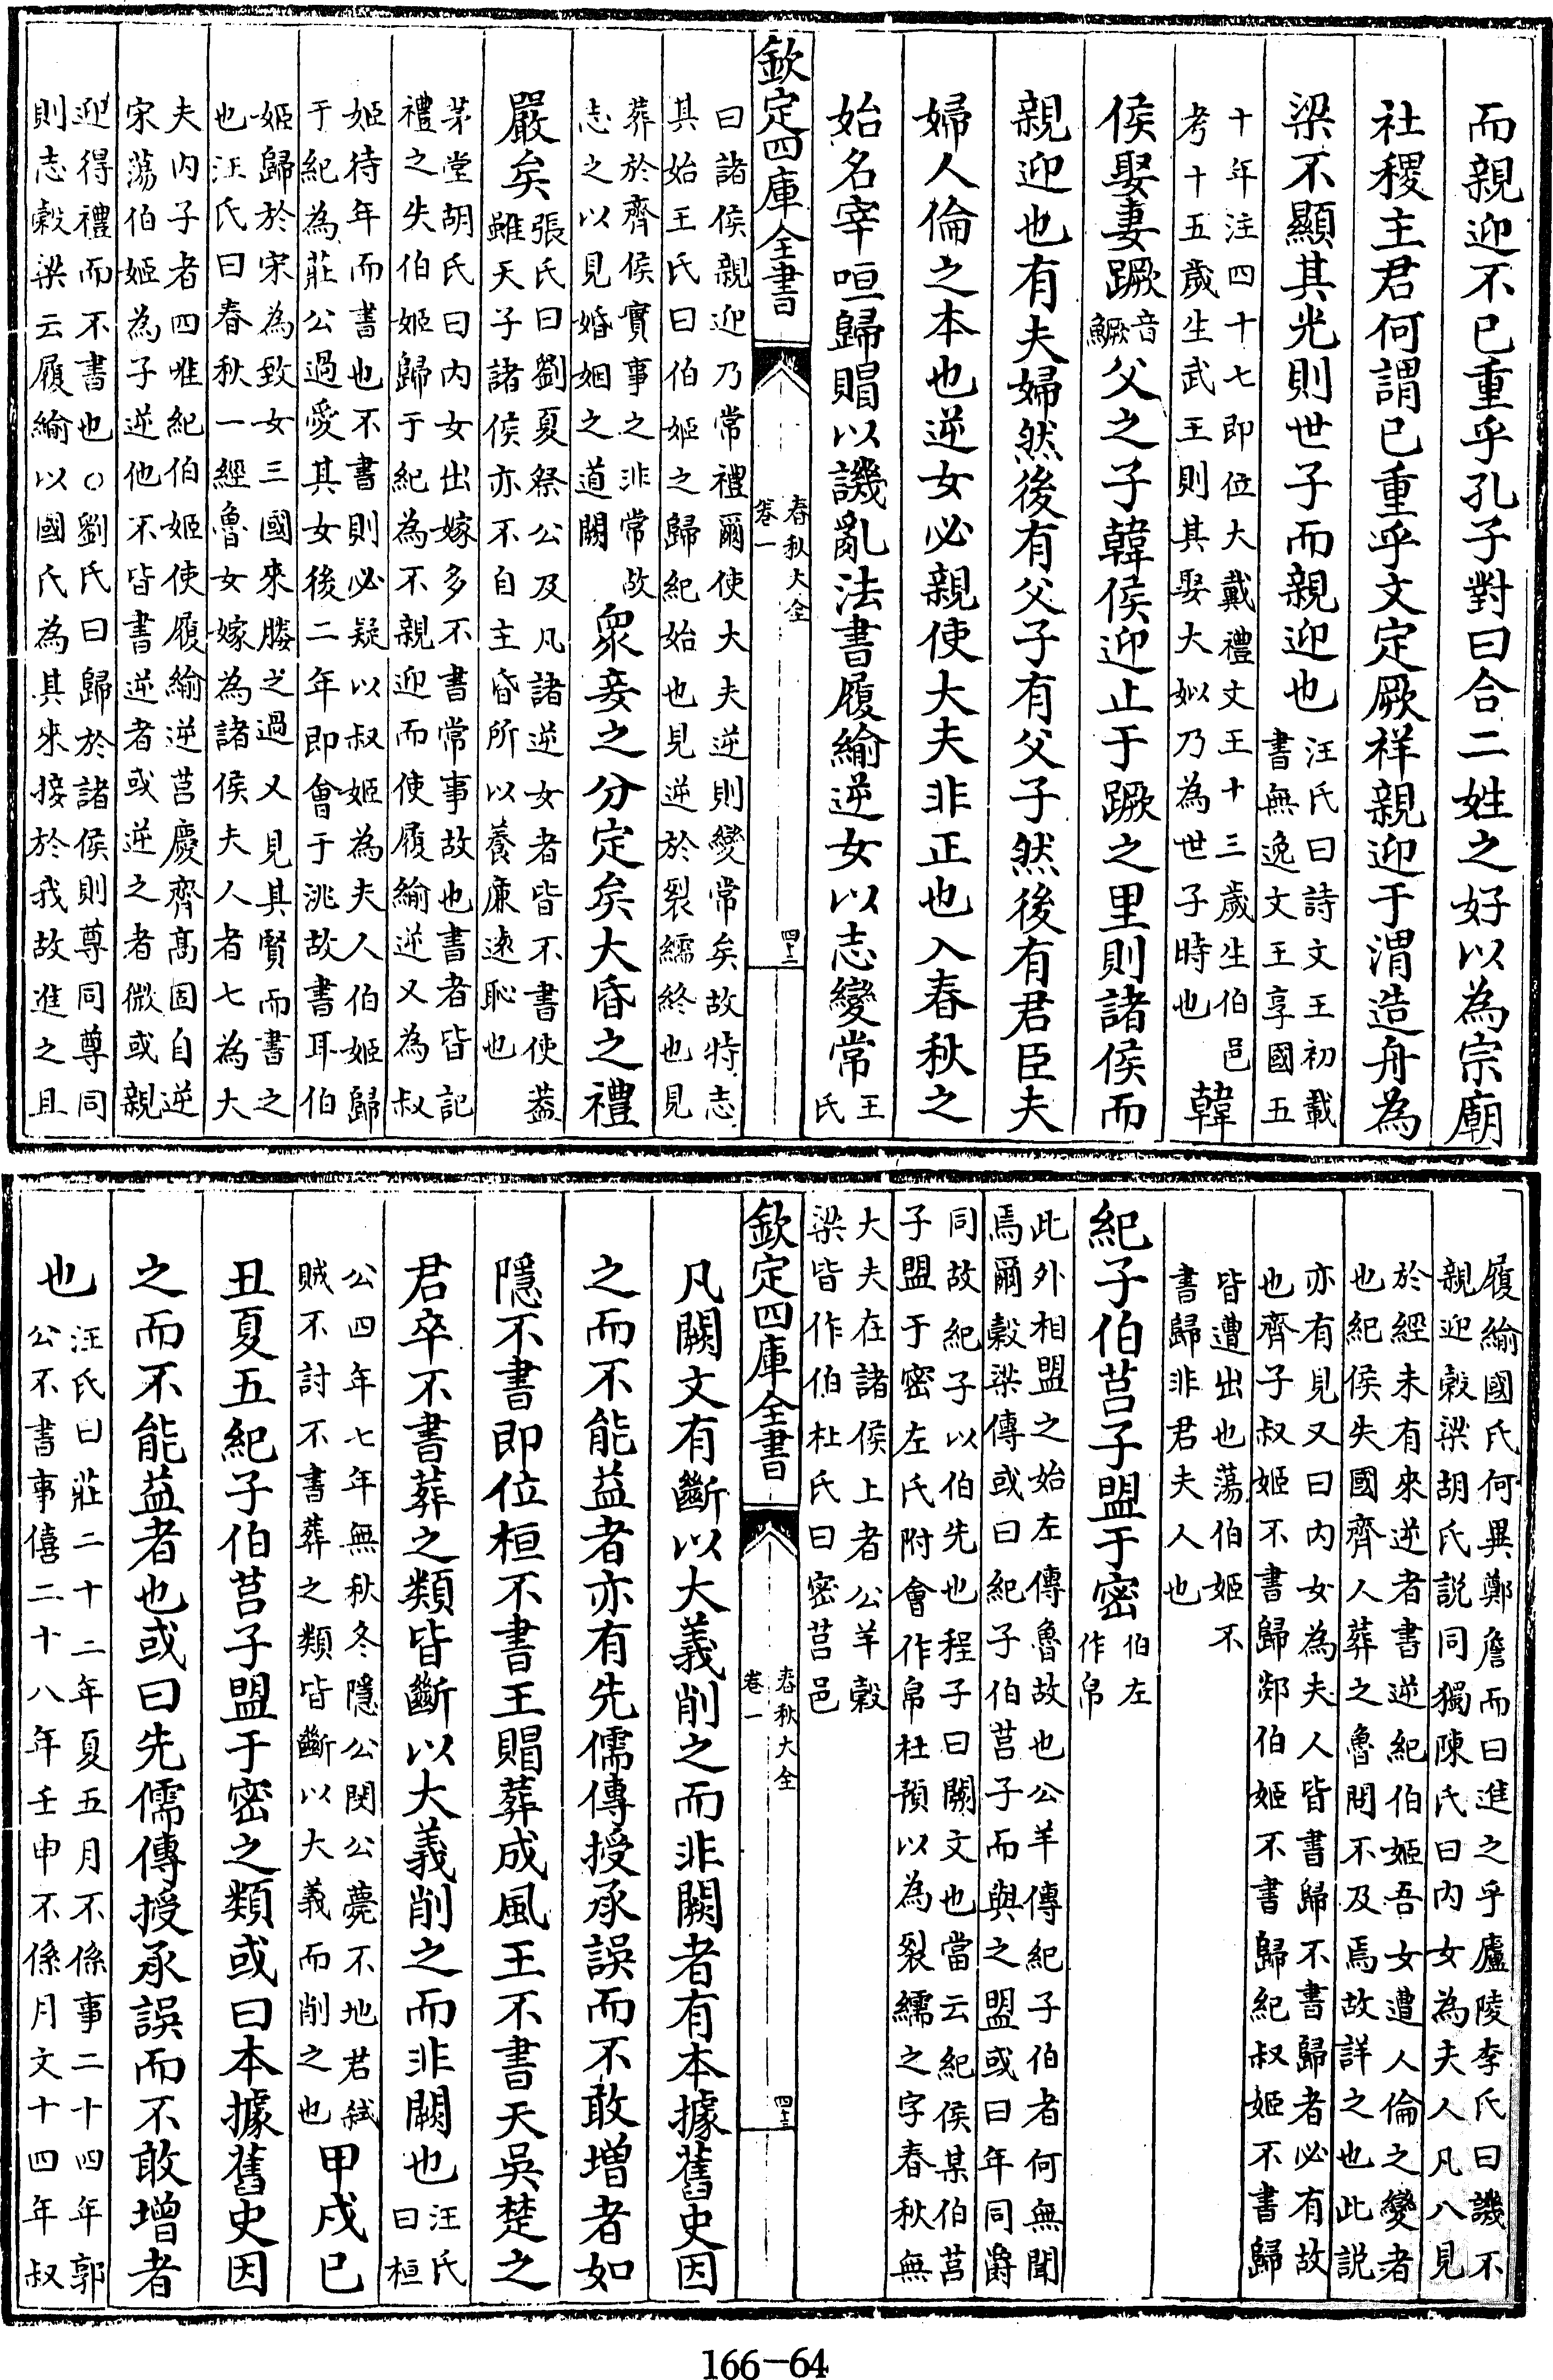 而親迎不已重乎孔子對曰合二姓之好以為宗廟
社稷主君何謂已重乎文定厥祥親迎于渭造舟為
梁不顯其光則世子而親迎也
汪氏曰詩文王初載
書無逸文王享國五
十年注四十七即位大戴禮文王十三歲生伯邑
考十五歲生武王則其娶大姒乃為世子時也
韓
侯娶妻蹶
音
鱖
父之子韓侯迎止于蹶之里則諸侯而
親迎也有夫婦然後有父子有父子然後有君臣夫
婦人倫之本也逆女必親使大夫非正也入春秋之
始名宰咺歸賵以譏亂法書履緰逆女以志變常
王
氏
曰諸侯親迎乃常禮爾使大夫逆則變常矣故特志
其始王氏曰伯姬之歸紀始也見逆於裂繻終也見
葬於齊侯實事之非常故
志之以見婚姻之道闕
眾妾之分定矣大昏之禮
嚴矣
張氏曰劉夏祭公及凡諸逆女者皆不書使蓋
雖天子諸侯亦不自主昏所以養廉遠恥也
茅堂胡氏曰内女出嫁多不書常事故也書者皆記
禮之失伯姬歸于紀為不親迎而使履緰逆又為叔
姬待年而書也不書則必疑以叔姬為夫人伯姬歸
于紀為莊公過愛其女後二年即會于洮故書耳伯
姬歸於宋為致女三國來媵之過又見其賢而書之
也汪氏曰春秋一經魯女嫁為諸侯夫人者七為大
夫内子者四唯紀伯姬使履緰逆莒慶齊高固自逆
宋蕩伯姬為子逆他不皆書逆者或逆之者微或親
迎得禮而不書也○劉氏曰歸於諸侯則尊同尊同
則志榖梁云履緰以國氏為其來接於我故進之且
欽定四庫全書
春秋大全
卷一
四十二
履緰國氏何異鄭詹而曰進之乎廬陵李氏曰譏不
親迎榖梁胡氏說同獨陳氏曰内女為夫人凡八見
於經未有來逆者書逆紀伯姬吾女遭人倫之變者
也紀侯失國齊人葬之魯閔不及焉故詳之也此説
亦有見又曰内女為夫人皆書歸不書歸者必有故
也齊子叔姬不書歸郯伯姬不書歸紀叔姬不書歸
皆遭出也蕩伯姬不
書歸非君夫人也
紀子伯莒子盟于密
伯左
作帛
此外相盟之始左傳魯故也公羊傳紀子伯者何無聞
焉爾榖梁傳或曰紀子伯莒子而與之盟或曰年同爵
同故紀子以伯先也程子曰闕文也當云紀侯某伯莒
子盟于密左氏附會作帛杜預以為裂繻之字春秋無
大夫在諸侯上者公羊榖
梁皆作伯杜氏曰密莒邑
欽定四庫全書
春秋大全
卷一
四十三
凡闕文有斷以大義削之而非闕者有本據舊史因
之而不能益者亦有先儒傳授承誤而不敢增者如
隱不書即位桓不書王賵葬成風王不書天吳楚之
君卒不書葬之類皆斷以大義削之而非闕也
汪氏
曰桓
公四年七年無秋冬隱公閔公薨不地君弑
賊不討不書葬之類皆斷以大義而削之也
甲戌已
丑夏五紀子伯莒子盟于密之類或曰本據舊史因
之而不能益者也或曰先儒傳授承誤而不敢增者
也
汪氏曰莊二十二年夏五月不係事二十四年郭
公不書事僖二十八年壬申不係月文十四年叔
166-64